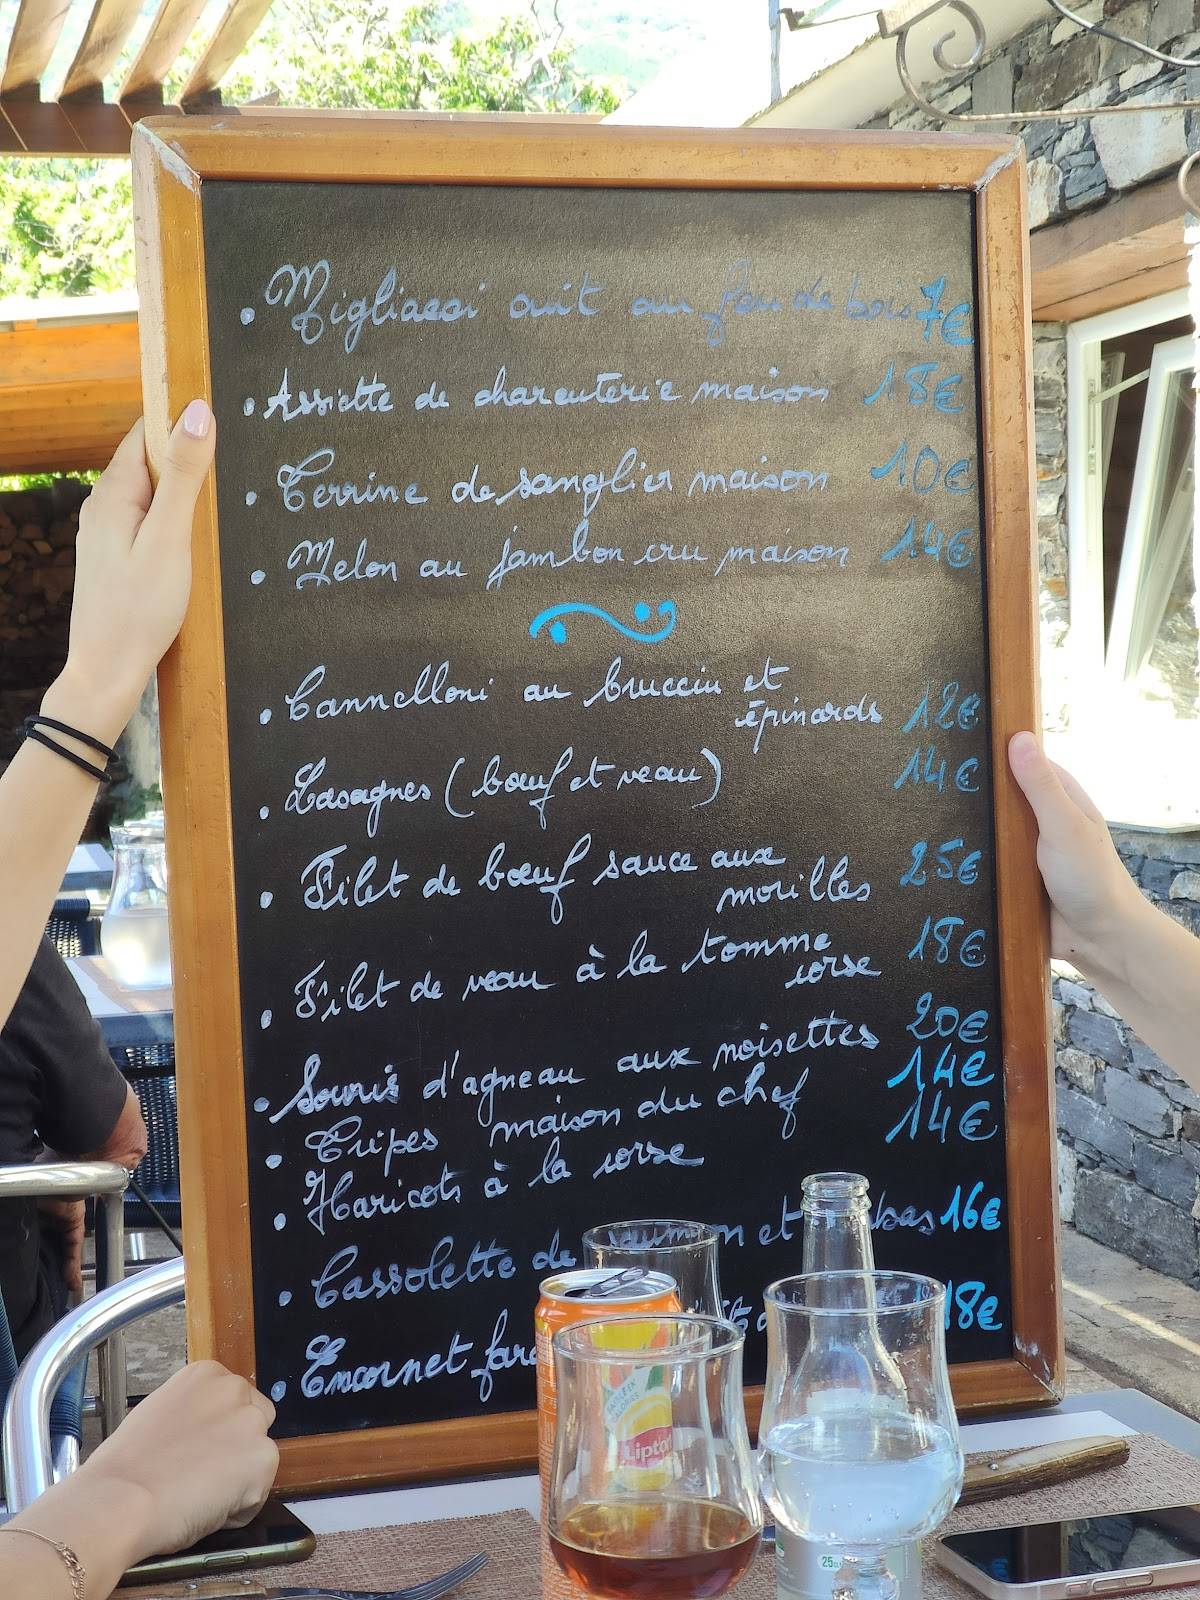 . Migliacci cuit au feu de bois 7€
. Assiette de charcuterie maison 18€
. Terrine de sanglier maison 10€
. Melon au jambon cru maison 14€
. Cannelloni au brucciu et
épinards 12€
. Lasagnes (bœuf et veau) 14€
. Filet de bœuf sauce aux
morilles 25€
. Filet de veau à la tomme
corse 18€
. Souris d'agneau aux noisettes 20€
. Tripes maison du chef 14€
. Haricots à la corse 14€
. Cassolette de saumon et 16€
. Encornet 18€
Lipton
25cl